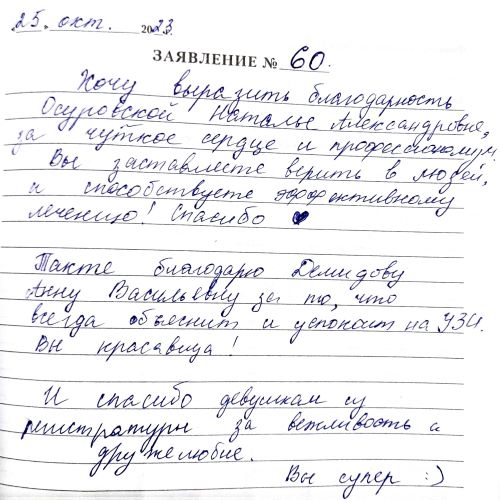 25. окт. 2023.
ЗАЯВЛЕНИЕ № 60.
Хочу выразить благодарность
Осуровской Наталье Александровне,
за чуткое сердце и профессионализм
Вы заставляете верить в людей,
и способствуете эффективному
лечению! Спасибо
Также благодарю Демидову
Анну Васильевну за то, что
всегда объяснит и успокоит на УЗИ.
Вы красавица!
И спасибо девушкам из
регистратуры за вежливость и
дружелюбие.
Вы супер :)